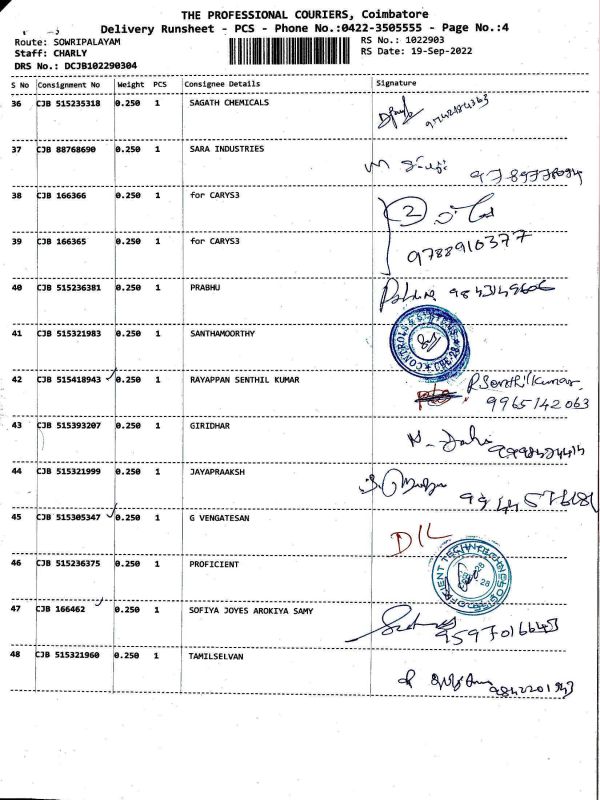 THE PROFESSIONAL COURIERS, Coimbatore
Delivery Runsheet - PCS - Phone No.:0422-3505555 - Page No.:4
Route: SOWRIPALAYAM
RS No.: 1022903
Staff: CHARLY
RS Date: 19-Sep-2022
DRS No.: DCJB102290304
S No Consignment No Weight PCS Consignee Details Signature
36 CJB 515235318 0.250 1 SAGATH CHEMICALS
37 CJB 88768690 0.250 1 SARA INDUSTRIES
38 CJB 166366 0.250 1 for CARYS3 2
39 CJB 166365 0.250 1 for CARYS3 9788910377
40 CJB 515236381 0.250 1 PRABHU
41 CJB 515321983 0.250 1 SANTHAMOORTHY CONTROLS & SYSTEMS
42 CJB 515418943 0.250 1 RAYAPPAN SENTHIL KUMAR R.Senthilkumar
9965142063
43 CJB 515393207 0.250 1 GIRIDHAR
44 CJB 515321999 0.250 1 JAYAPRAAKSH
45 CJB 515305347 0.250 1 G VENGATESAN D/L
46 CJB 515236375 0.250 1 PROFICIENT
47 CJB 166462 0.250 1 SOFIYA JOYES AROKIYA SAMY 9597016643
48 CJB 515321960 0.250 1 TAMILSELVAN